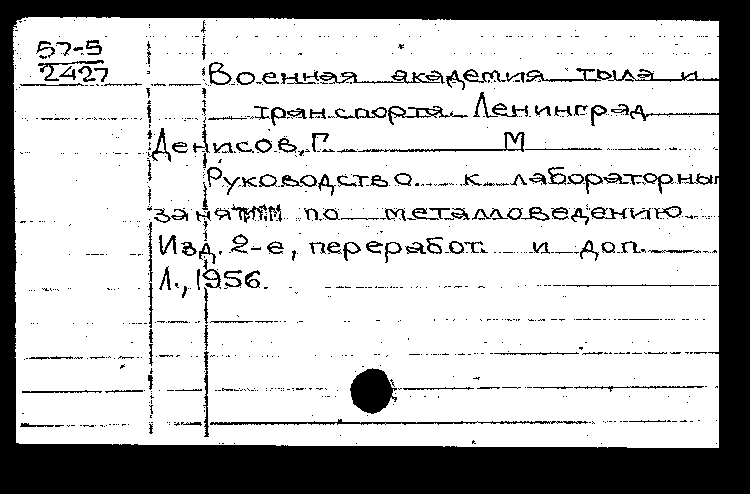 57-5
2427
Военная академия тыла и
транспорта. Ленинград
Денисов, Г. М
Руководство к лабораторны
занятиям по металловедению.
Изд. 2-е, переработ. и доп.
Л., 1956.